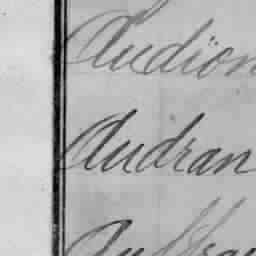 Audion
Audran